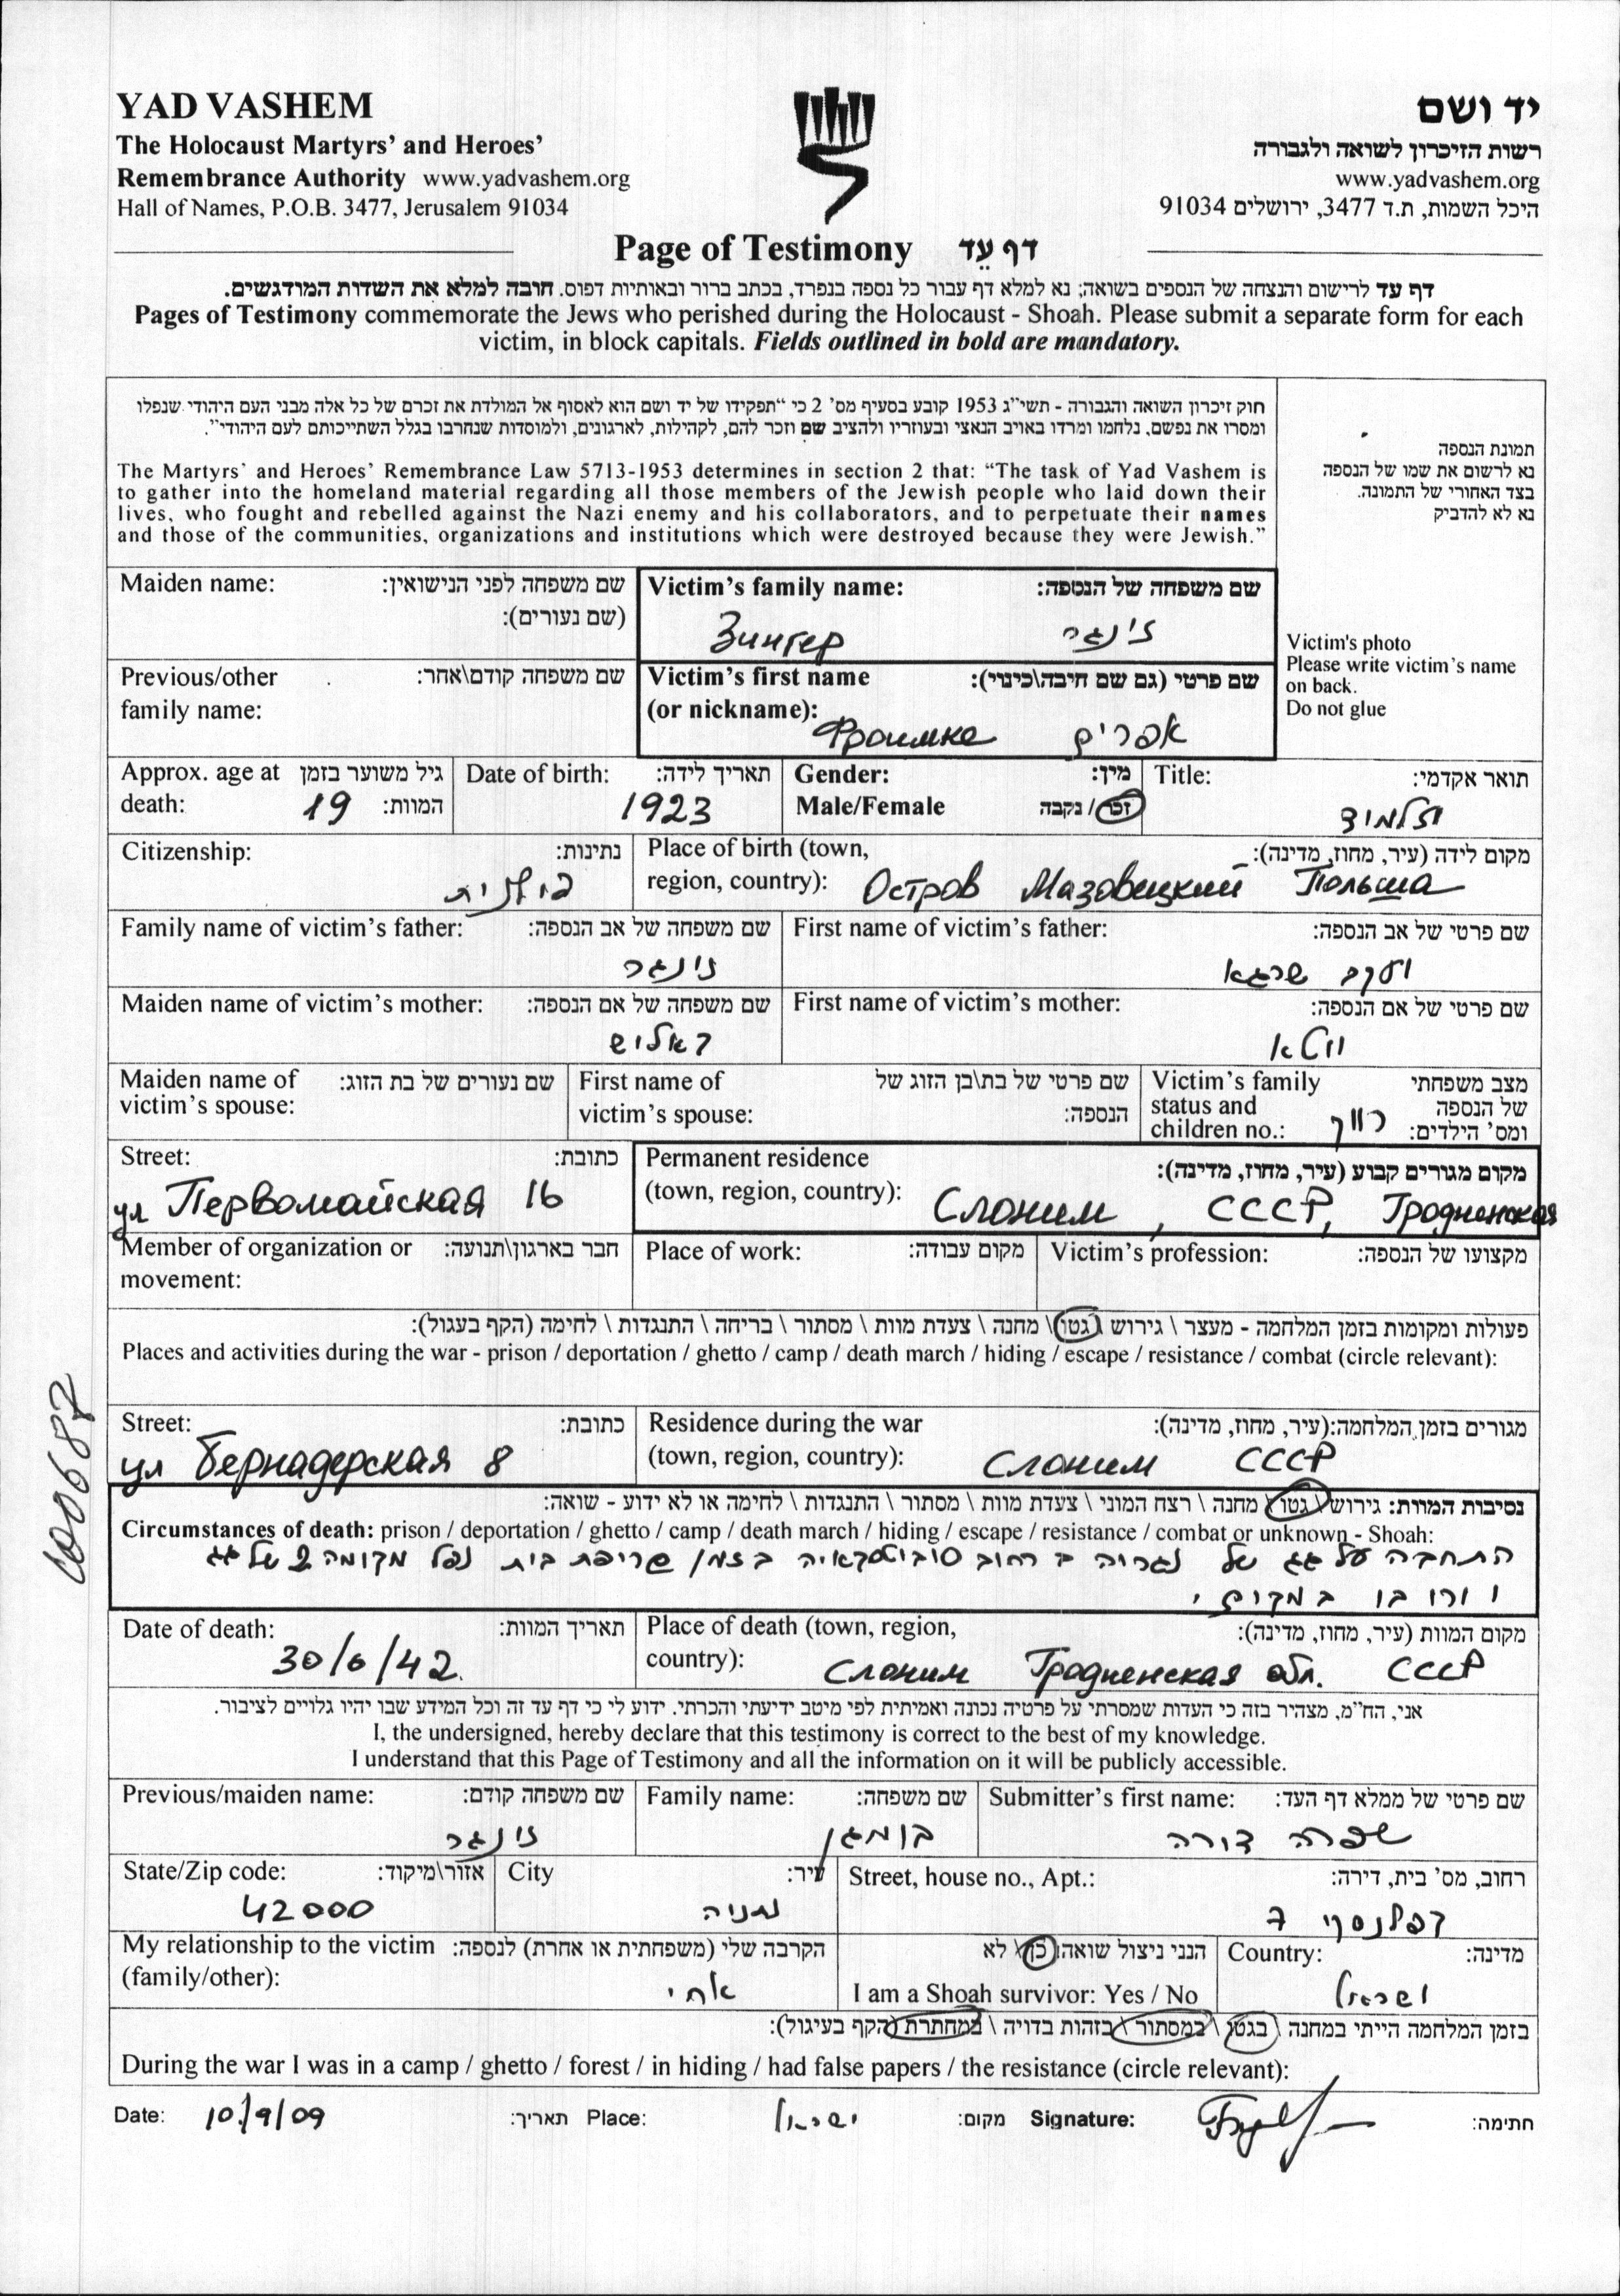 YAD VASHEM
The Holocaust Martyrs' and Heroes'
Remembrance Authority www.yadvashem.org
Hall of Names, P.O.B. 3477, Jerusalem 91034
יד ושם
רשות הזיכרון לשואה ולגבורה
www.yadvashem.org
היכל השמות, ת.ד 3477, ירושלים 91034
Page of Testimony דף עֵד
דף עד לרישום והנצחה של הנספים בשואה; נא למלא דף עבור כל נספה בנפרד, בכתב ברור ובאותיות דפוס. חובה למלא את השדות המודגשים.
Pages of Testimony commemorate the Jews who perished during the Holocaust - Shoah. Please submit a separate form for each
victim, in block capitals. Fields outlined in bold are mandatory.
חוק זיכרון השואה והגבורה - תשי"ג 1953 קובע בסעיף מס' 2 כי "תפקידו של יד ושם הוא לאסוף אל המולדת את זכרם של כל אלה מבני העם היהודי שנפלו
ומסרו את נפשם, נלחמו ומרדו באויב הנאצי ובעוזריו ולהציב שם וזכר להם, לקהילות, לארגונים, ולמוסדות שנחרבו בגלל השתייכותם לעם היהודי".
The Martyrs' and Heroes' Remembrance Law 5713-1953 determines in section 2 that: "The task of Yad Vashem is
to gather into the homeland material regarding all those members of the Jewish people who laid down their
lives, who fought and rebelled against the Nazi enemy and his collaborators, and to perpetuate their names
and those of the communities, organizations and institutions which were destroyed because they were Jewish."
תמונת הנספה
נא לרשום את שמו של הנספה
בצד האחורי של התמונה.
נא לא להדביק
Victim's photo
Please write victim's name
on back.
Do not glue
Maiden name: שם משפחה לפני הנישואין:
(שם נעורים):
Victim's family name: שם משפחה של הנספה:
Зингер זינגר
Previous/other שם משפחה קודם\אחר:
family name:
Victim's first name שם פרטי (גם שם חיבה\כינוי):
(or nickname):
Фроимке אפרים
Approx. age at גיל משוער בזמן
death: 19 המוות:
Date of birth: תאריך לידה:
1923
Gender: מין:
Male/Female זכר / נקבה
Title: תואר אקדמי:
Citizenship: נתינות:
פולנית
Place of birth (town, מקום לידה (עיר, מחוז, מדינה):
region, country): Остров Мазовецкий Польша
Family name of victim's father: שם משפחה של אב הנספה:
זינגר
First name of victim's father: שם פרטי של אב הנספה:
יעקב שרגא
Maiden name of victim's mother: שם משפחה של אם הנספה:
קאליש
First name of victim's mother: שם פרטי של אם הנספה:
Maiden name of שם נעורים של בת הזוג:
victim's spouse:
First name of שם פרטי של בת\בן הזוג של
victim's spouse: הנספה:
Victim's family מצב משפחתי
status and של הנספה
children no.: רווק ומס' הילדים:
Street: כתובת:
ул Первомайская 16
Permanent residence מקום מגורים קבוע (עיר, מחוז, מדינה):
(town, region, country): Слоним, СССР, Гродненская
Member of organization or חבר בארגון\תנועה:
movement:
Place of work: מקום עבודה:
Victim's profession: מקצועו של הנספה:
פעולות ומקומות בזמן המלחמה - מעצר \ גירוש \ גטו \ מחנה \ צעדת מוות \ מסתור \ בריחה \ התנגדות \ לחימה (הקף בעגול):
Places and activities during the war - prison / deportation / ghetto / camp / death march / hiding / escape / resistance / combat (circle relevant):
Street: כתובת:
ул Бернадерская 8
Residence during the war מגורים בזמן המלחמה:(עיר, מחוז, מדינה):
(town, region, country): Слоним СССР
נסיבות המוות: גירוש \ גטו \ מחנה \ רצח המוני \ צעדת מוות \ מסתור \ התנגדות \ לחימה או לא ידוע - שואה:
Circumstances of death: prison / deportation / ghetto / camp / death march / hiding / escape / resistance / combat or unknown - Shoah:
התחבה על גג של נגריה ברחוב בזמן שריפת בית נפל מקומה 2 של גג
וירו בו במקום.
Date of death: תאריך המוות:
30/6/42.
Place of death (town, region, מקום המוות (עיר, מחוז, מדינה):
country): Слоним Гродненская обл. СССР
אני, הח"מ, מצהיר בזה כי העדות שמסרתי על פרטיה נכונה ואמיתית לפי מיטב ידיעתי והכרתי. ידוע לי כי דף עד זה וכל המידע שבו יהיו גלויים לציבור.
I, the undersigned, hereby declare that this testimony is correct to the best of my knowledge.
I understand that this Page of Testimony and all the information on it will be publicly accessible.
Previous/maiden name: שם משפחה קודם:
זינגר
Family name: שם משפחה:
בומגן
Submitter's first name: שם פרטי של ממלא דף העד:
שפרה דורה
State/Zip code: אזור\מיקוד:
42000
City עיר:
נתניה
Street, house no., Apt.: רחוב, מס' בית, דירה:
7
My relationship to the victim הקרבה שלי (משפחתית או אחרת) לנספה:
(family/other): אחי
הנני ניצול שואה: כן \ לא
I am a Shoah survivor: Yes / No
Country: מדינה:
ישראל
בזמן המלחמה הייתי במחנה \ בגטו \ במסתור \ בזהות בדויה \ במחתרת (הקף בעיגול):
During the war I was in a camp / ghetto / forest / in hiding / had false papers / the resistance (circle relevant):
Date: 10/9/09 תאריך: Place: ישראל מקום: Signature: חתימה: